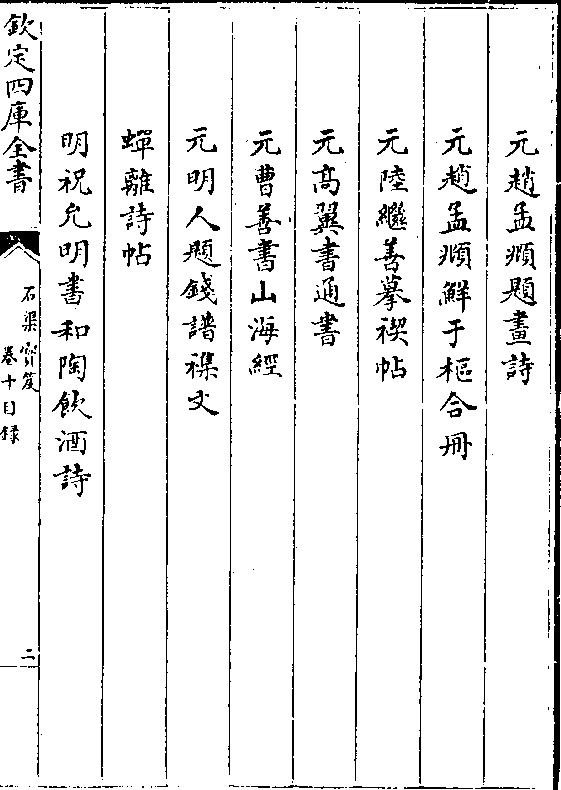 元趙孟頫題畫詩
元趙孟頫鮮于樞合冊
元陸繼善摹禊帖
元高翼書通書
元曹善書山海經
元明人題錢譜襍文
蟬離詩帖
明祝允明書和陶飲酒詩
欽定四庫全書
石渠寶笈
卷十目録
二